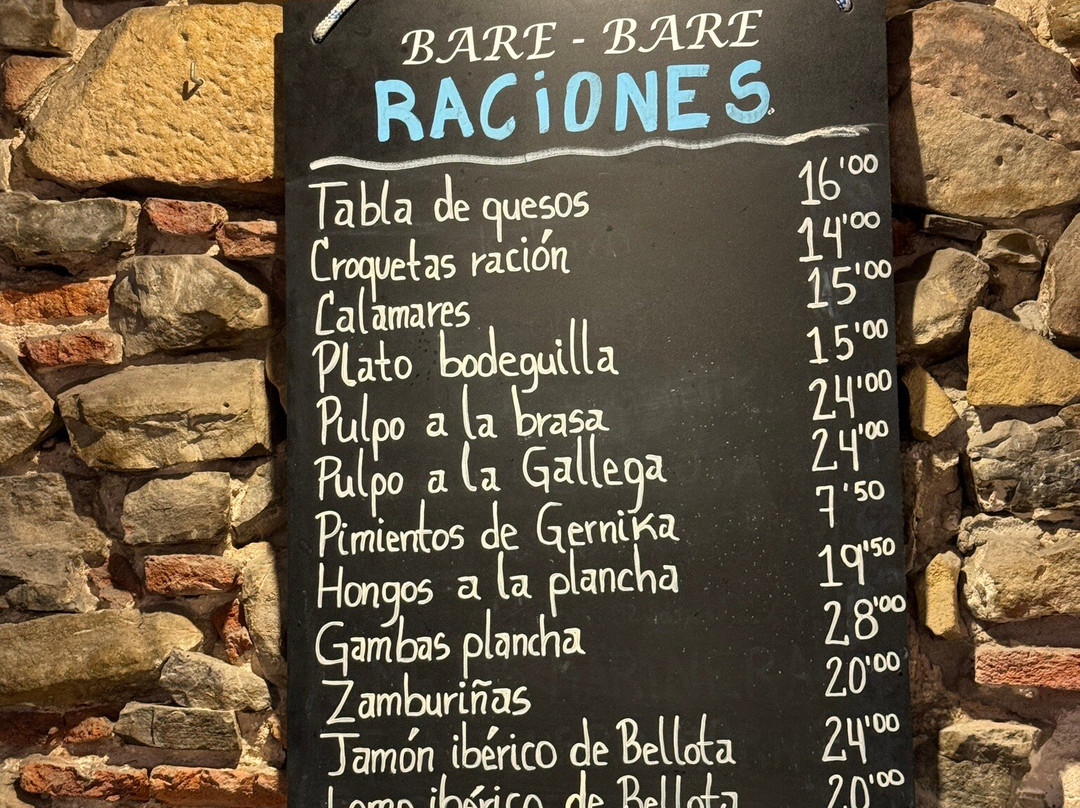 BARE - BARE
RACiONES
Tabla de quesos 16'00
Croquetas ración 14'00
Calamares 15'00
Plato bodeguilla 15'00
Pulpo a la brasa 24'00
Pulpo a la Gallega 24'00
Pimientos de Gernika 7'50
Hongos a la plancha 19'50
Gambas plancha 28'00
Zamburiñas 20'00
Jamón ibérico de Bellota 24'00
Lomo ibérico de Bellota 20'00